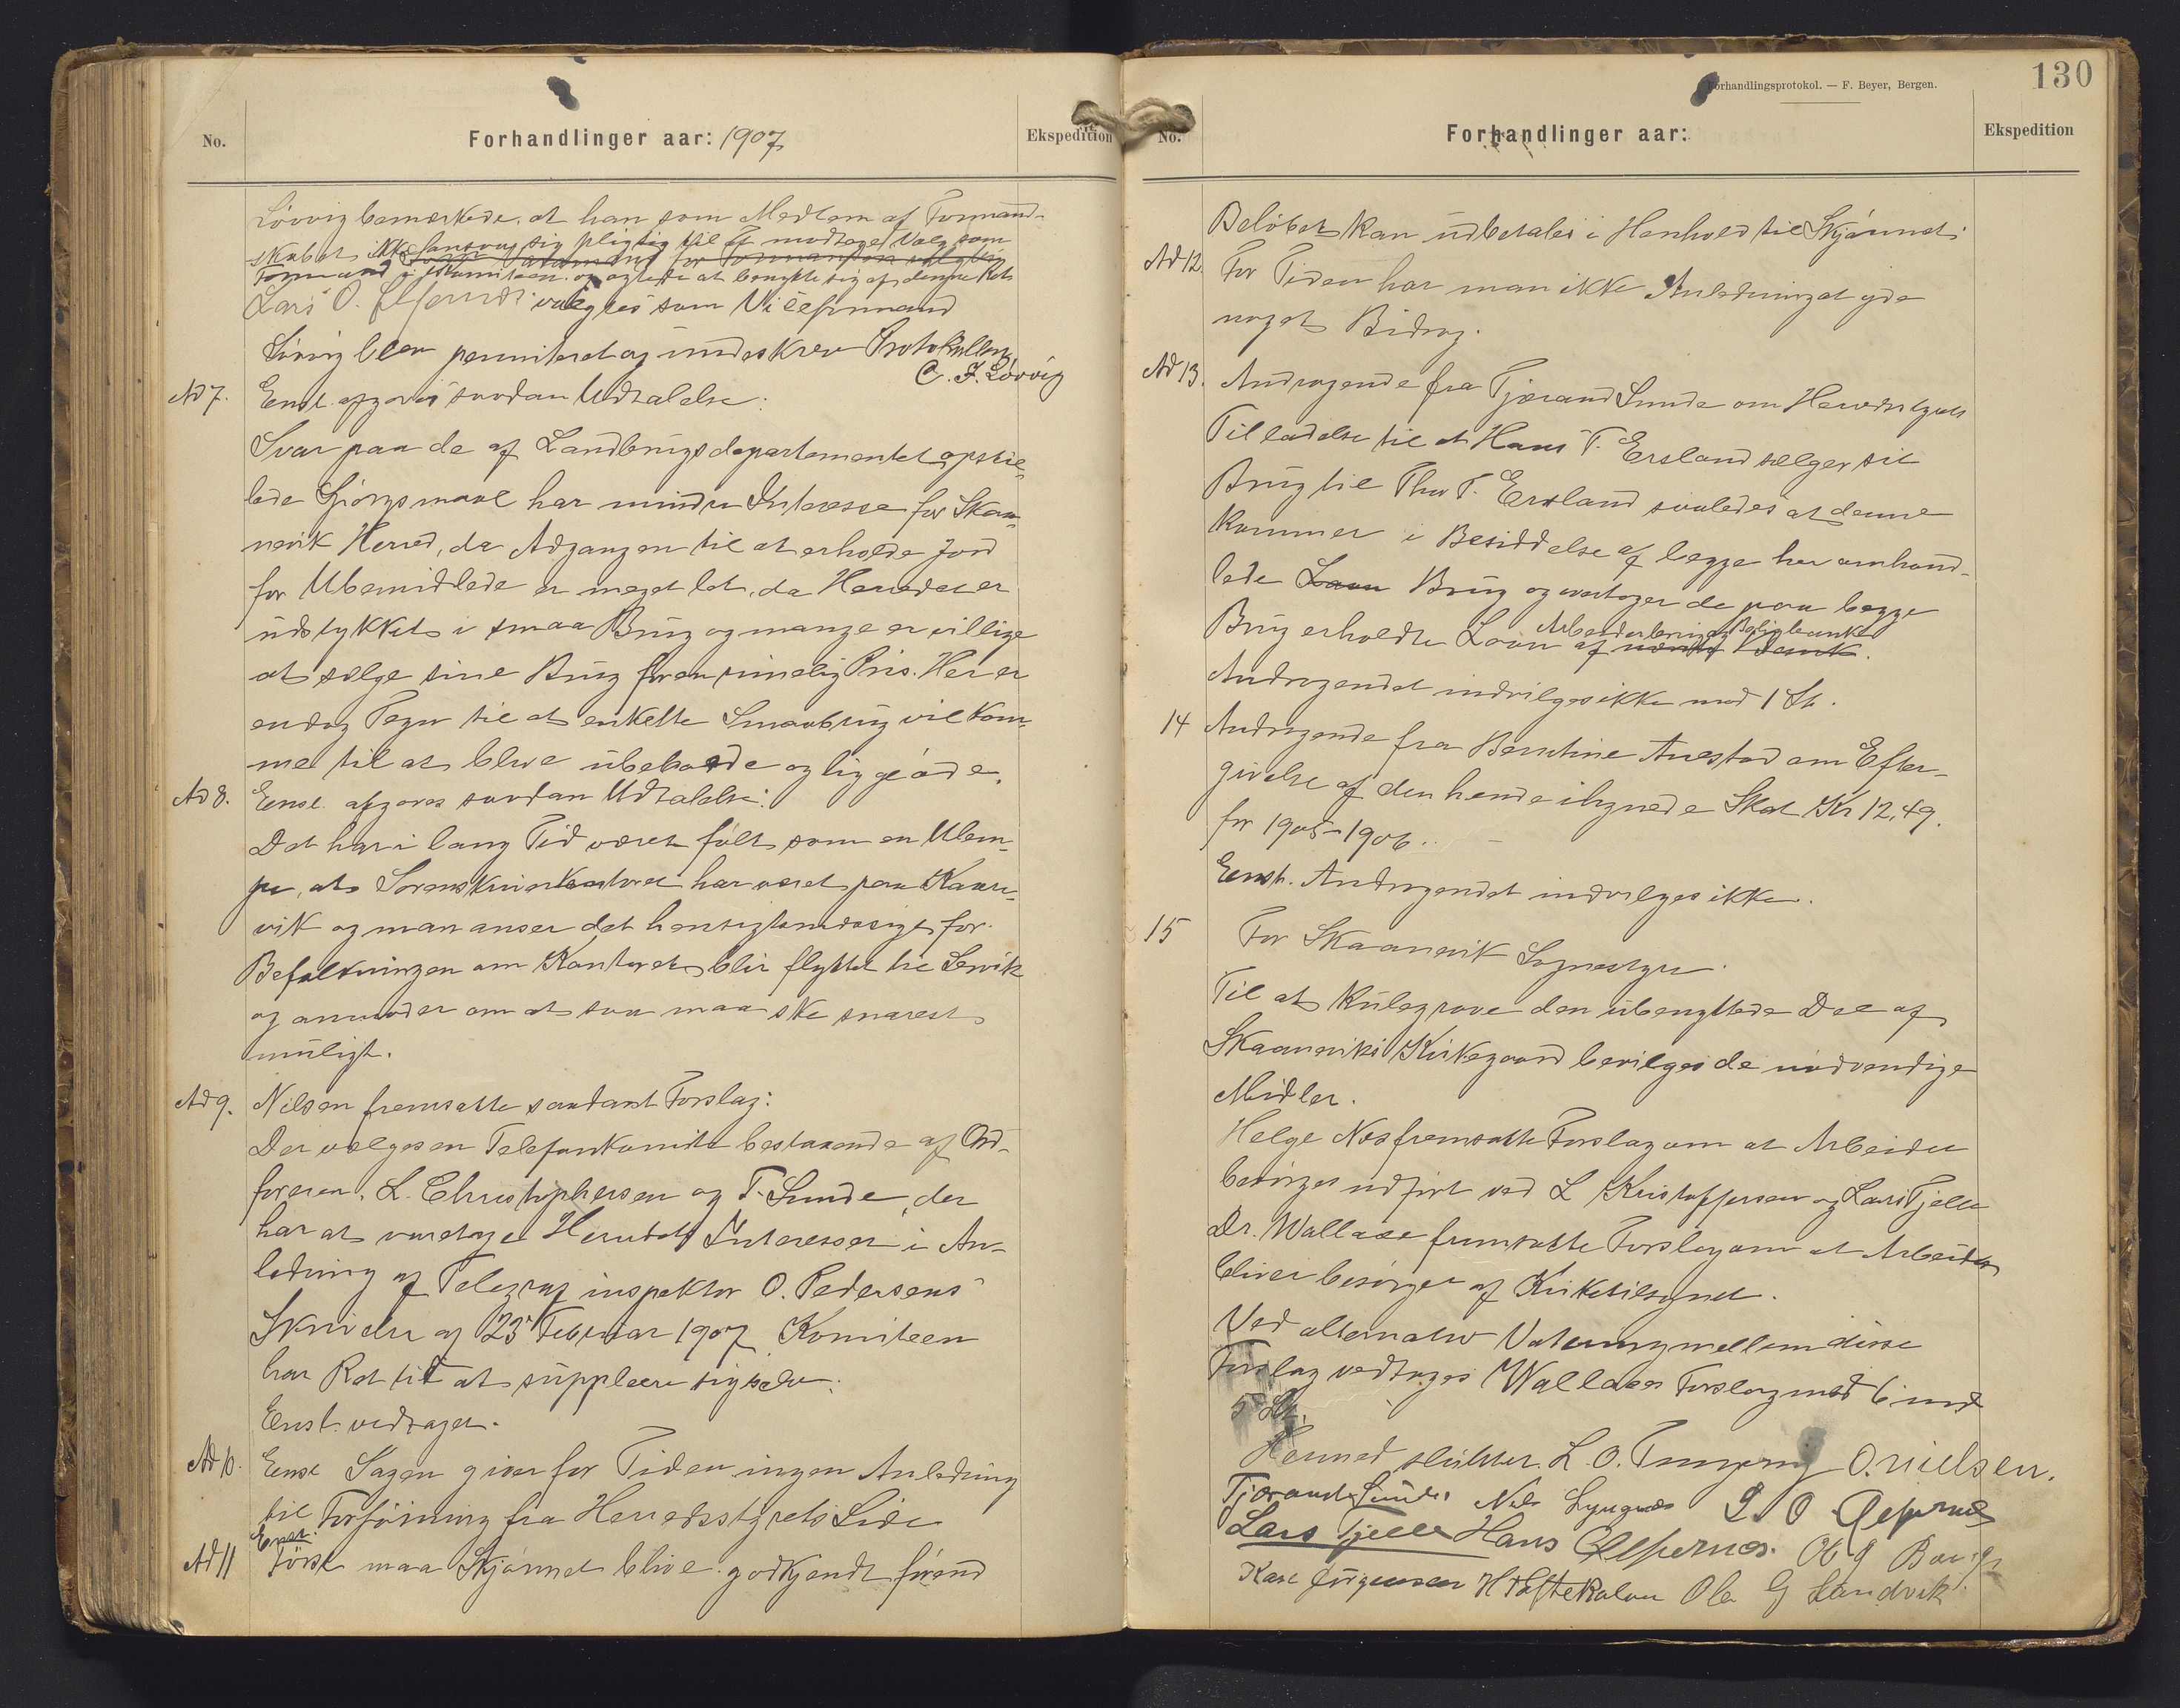 No.
Forhandlinger aar: 1907
Ekspedition
Løvvig bemærkede, at han som Medlem af Formand-
skabet ikke ansaa sig pligtig til at modtage Valg som
Formand i Komiteen og agtede at benytte sig af denne Ret
Lars O. valgtes som Viceformand
Løvvig blev permiteret og underskrev Protokollen.
C. F. Løvvig
Ad 7. Enst. afgaves saadan Udtalelse:
Svar paa de af Landbrugsdepartementet opstil-
lede Spørgsmaal har mindre Interesse for Skaa-
nevik Herred, da Adgangen til at erholde Jord
for Ubemidlede er meget let, da Herredet er
udstykket i smaa Brug og mange er villige
at sælge sine Brug for en rimelig Pris. Her er
endog Tegn til at enkelte Smaabrug vil kom-
me til at blive ubeboede og ligge øde.
Ad 8. Enst. afgaves saadan Udtalelse:
Det har i lang Tid været følt som en Ulem-
pe, at Sorenskriverkontoret har været paa Kaare-
vik og man anser det hensigtsmæssigt for
Befolkningen om Kontoret blir flyttet til Lervik
og anmoder om at saa maa ske snarest
muligt.
Ad 9. Nilsen fremsatte saadant Forslag:
Der vælges en Telefonkomite bestaaende af Ord-
føreren, L. Christophersen og T. Sunde, der
har at varetage Herredets Interesser i An-
ledning af Telegrafinspektør O. Pedersens
Skrivelse af 23 Februar 1907. Komiteen
har Ret til at supplere sig selv.
Enst. vedtaget.
Ad 10. Enst Sagen giver for Tiden ingen Anledning
til Forføining fra Herredsstyrets Side
Enst.
Ad 11 Først maa Skjønnet blive godkjendt førend
Forhandlingsprotokol. — F. Beyer, Bergen.
130
No.
Forhandlinger aar:
Ekspedition
Beløbet kan udbetales i Henhold til Skjønnet.
Ad 12. For Tiden har man ikke Anledning at yde
noget Bidrag.
Ad 13. Andragende fra Tjærand Sunde om Herredsstyrets
Tilladelse til at Hans T. Ersland sælger sit
Brug til Thor T. Ersland saaledes at denne
kommer i Besiddelse af begge her omhand-
lede Laan Brug og overtager de paa begge
Arbeiderbrug og Boligbanken
Brug erholdte Laan af nævnte Bank.
Andragendet indvilges ikke mod 1 St.
14 Andragende fra Berntine Tuestad om Efter-
givelse af den hende ilignede Skat Kr 12,49.
for 1905-1906.
Enst. Andragendet indvilges ikke.
15 For Skaanevik Sognestyre.
Til at kulegrave den ubenyttede Del af
Skaaneviks Kirkegaard bevilges de nødvendige
Midler.
Helge Næs fremsatte Forslag om at Arbeidet
besørges udført ved L Kristoffersen og Lars Tjelle
Dr. Wallace fremsatte Forslag om at Arbeidet
bliver besørget af Kirketilsynet.
Ved alternativ Votering mellem disse
Forslag vedtages Wallaces Forslag med 6 mod
5 St.
Hermed sluttet. L. O. O. Nielsen.
Tjærand Sunde Nils Lyngnæs L O
Lars Tjelle Hans Ob G
Karl Jørgensen H Toftekalven Ole G Sandvik